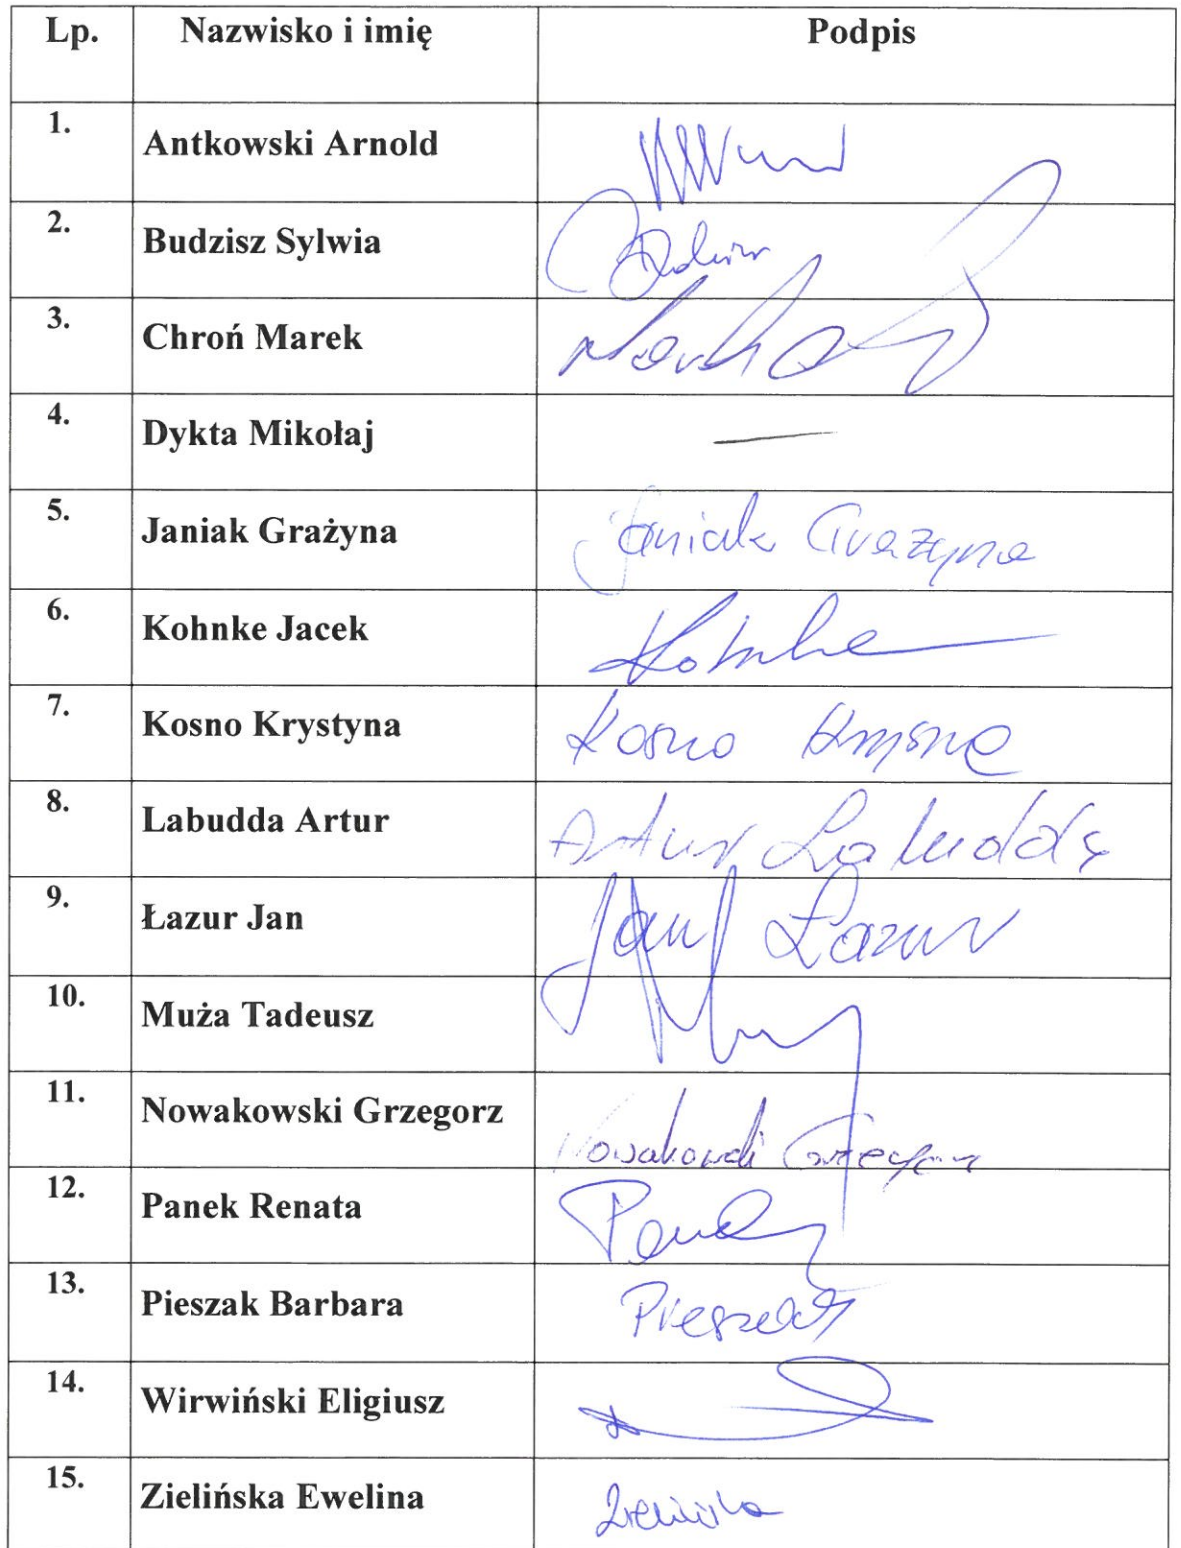 Lp. Nazwisko i imię Podpis
1. Antkowski Arnold
2. Budzisz Sylwia
3. Chroń Marek
4. Dykta Mikołaj —
5. Janiak Grażyna Janiak Grażyna
6. Kohnke Jacek Kohnke
7. Kosno Krystyna Kosno
8. Labudda Artur Artur Labudda
9. Łazur Jan Jan Łazur
10. Muża Tadeusz
11. Nowakowski Grzegorz Nowakowski Grzegorz
12. Panek Renata
13. Pieszak Barbara Pieszak
14. Wirwiński Eligiusz
15. Zielińska Ewelina Zielińska